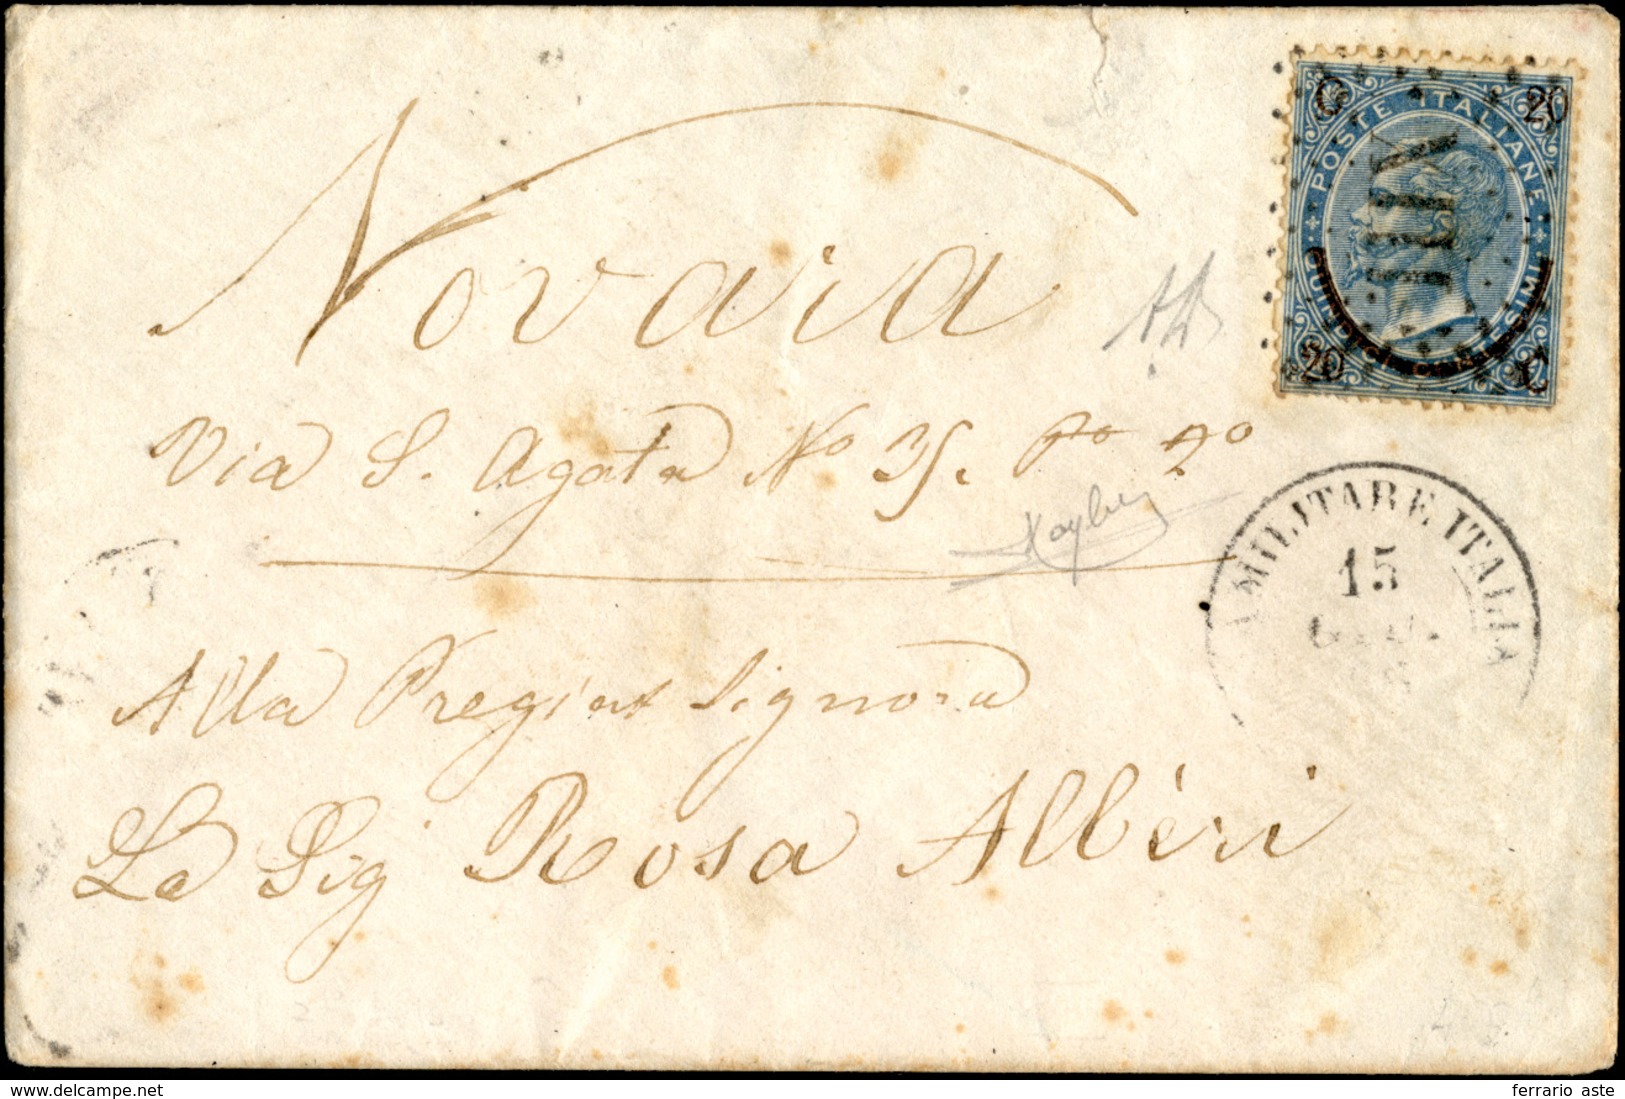 C 20
POSTE ITALIANE
20 C
Novara
Via S. Agata No 35. Po 2o
MILITARE ITALIA
15
Alla Pregiat Signora
La Sig Rosa Albèri
delcampe.net
ferrario aste